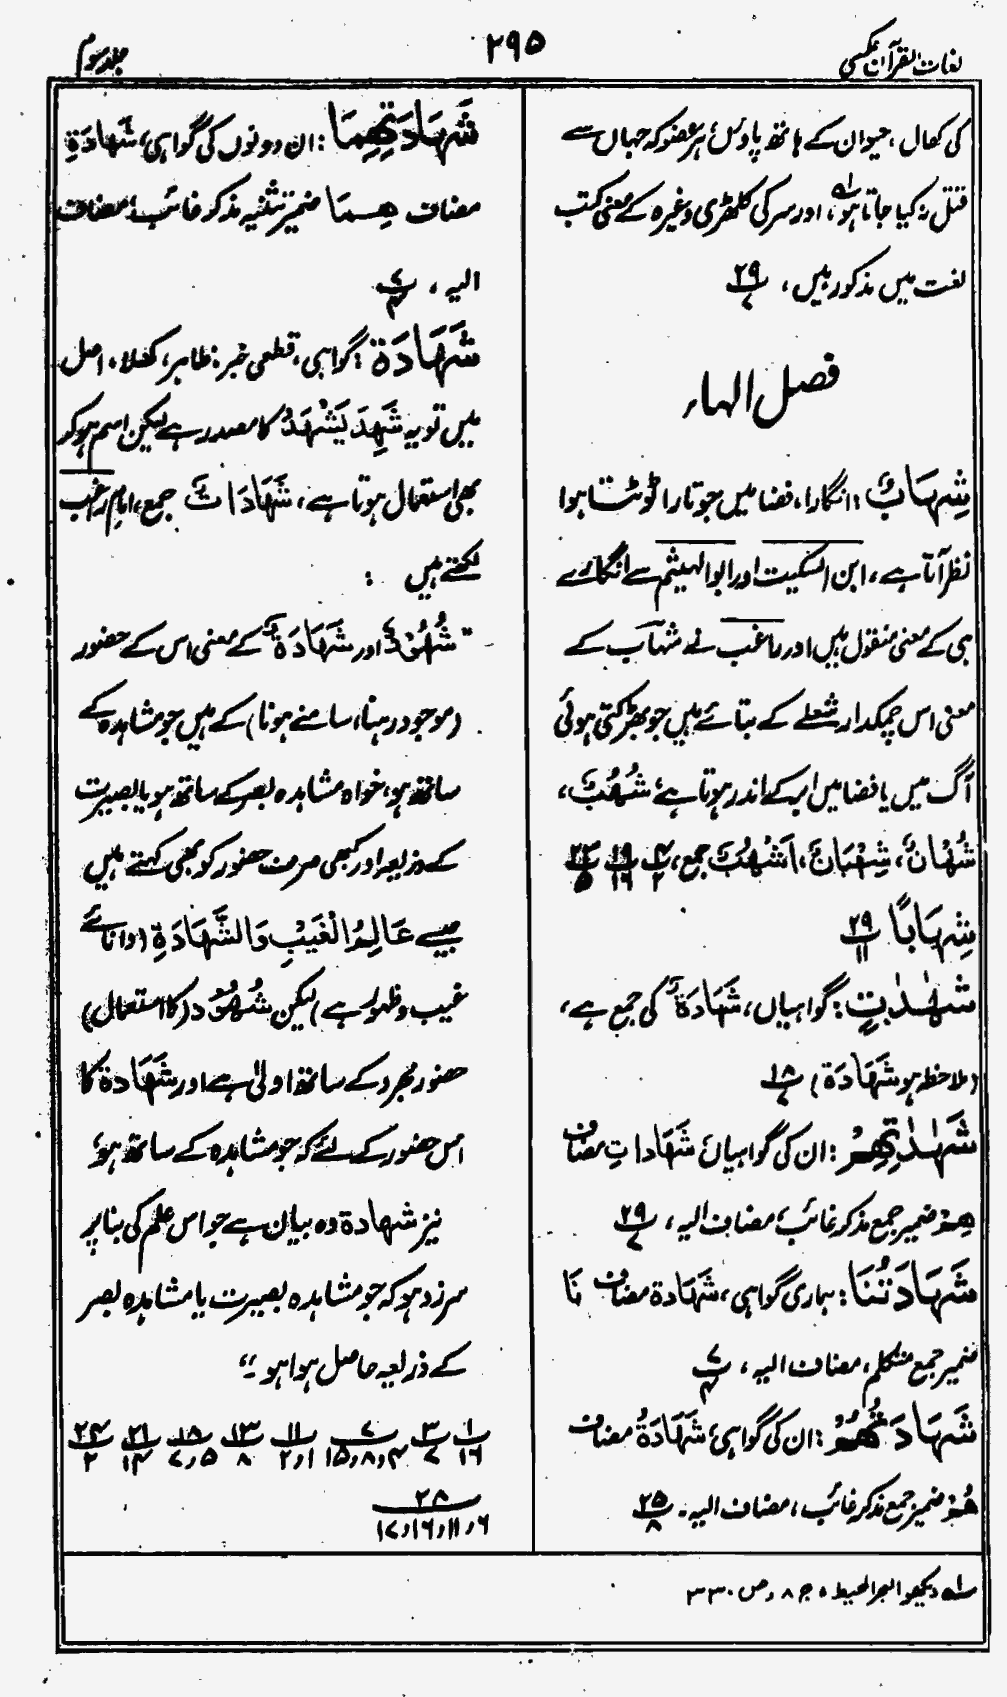 لغات القرآن عکسی
۲۹۵
جلد سوم
کی کھال، حیوان کے ہاتھ پاؤں، ہر عضو کہ جہاں سے
قتل نہ کیا جاتا ہو، اور سر کی کلھڑی وغیرہ کے معنی کتب
لغت میں مذکور ہیں، ۲۹/۷
فصل الہاء
شِهَابٌ: انگارا، فضا میں جو تارا ٹوٹتا ہوا
نظر آتا ہے، ابن السکیت اور ابو الہیثم سے انگارے
ہی کے معنی منقول ہیں اور راغب نے شہاب کے
معنی اس چمکدار شعلے کے بتائے ہیں جو بھڑکتی ہوئی
آگ میں یا فضا میں ابر کے اندر ہوتا ہے، شُهُبٌ،
شُهْبَانٌ، شِهْبَانٌ، اَشْهُبٌ جمع، ۱۴/۲ ۱۹/۱۶ ۲۳/۵
شِهَابًا ۲۹/۱۱
شَهٰدٰتٍ: گواہیاں، شَهَادَةٌ کی جمع ہے،
(ملاحظہ ہو شَهَادَة) ۱۸/۷
شَهٰدٰتِهِمْ: ان کی گواہیاں شَهَادَاتِ مضاف
هِمْ ضمیر جمع مذکر غائب، مضاف الیہ، ۲۹/۷
شَهَادَتُنَا: ہماری گواہی، شَهَادَة مضاف نَا
ضمیر جمع متکلم، مضاف الیہ، ۷/۴
شَهَادَتُهُمْ: ان کی گواہی، شَهَادَةُ مضاف
هُمْ ضمیر جمع مذکر غائب، مضاف الیہ۔ ۲۵/۸
شَهَادَتِهِمَا: ان دونوں کی گواہی، شَهَادَةِ
مضاف هِمَا ضمیر تثنیہ مذکر غائب، مضاف
الیہ، ۷/۴
شَهَادَة: گواہی، قطعی خبر، ظاہر، کھلا، اصل
میں تو یہ شَهِدَ يَشْهَدُ کا مصدر ہے لیکن اسم ہوکر
بھی استعمال ہوتا ہے، شَهَادَاتٌ جمع، امام راغب
لکھتے ہیں:
"شُهُوْدٌ اور شَهَادَةٌ کے معنی اس کے حضور
(موجود رہنا، سامنے ہونا) کے ہیں جو مشاہدہ کے
ساتھ ہو، خواہ مشاہدہ بصر کے ساتھ ہو یا بصیرت
کے ذریعہ اور کبھی صرف حضور کو بھی کہتے ہیں
جیسے عَالِمُ الْغَيْبِ وَالشَّهَادَةِ (دانائے
غیب و ظہور ہے) لیکن شُهُوْد (کا استعمال)
حضور مجرد کے ساتھ اولیٰ ہے اور شَهَادَة کا
اس حضور کے لئے کہ جو مشاہدہ کے ساتھ ہو،
نیز شہادۃ وہ بیان ہے جو اس علم کی بنا پر
سرزد ہو کہ جو مشاہدہ بصیرت یا مشاہدہ بصر
کے ذریعہ حاصل ہوا ہو۔"
۱/۱۶ ۳/۷ ۷/۴،۸،۱۵ ۱۱/۱،۲ ۱۳/۸ ۱۸/۵،۷ ۲۱/۱۴ ۲۴/۲
۲۸/۶،۱۱،۱۶،۱۷
؎۱ دیکھو البحر المحیط، ج ۸، ص ۳۳۰